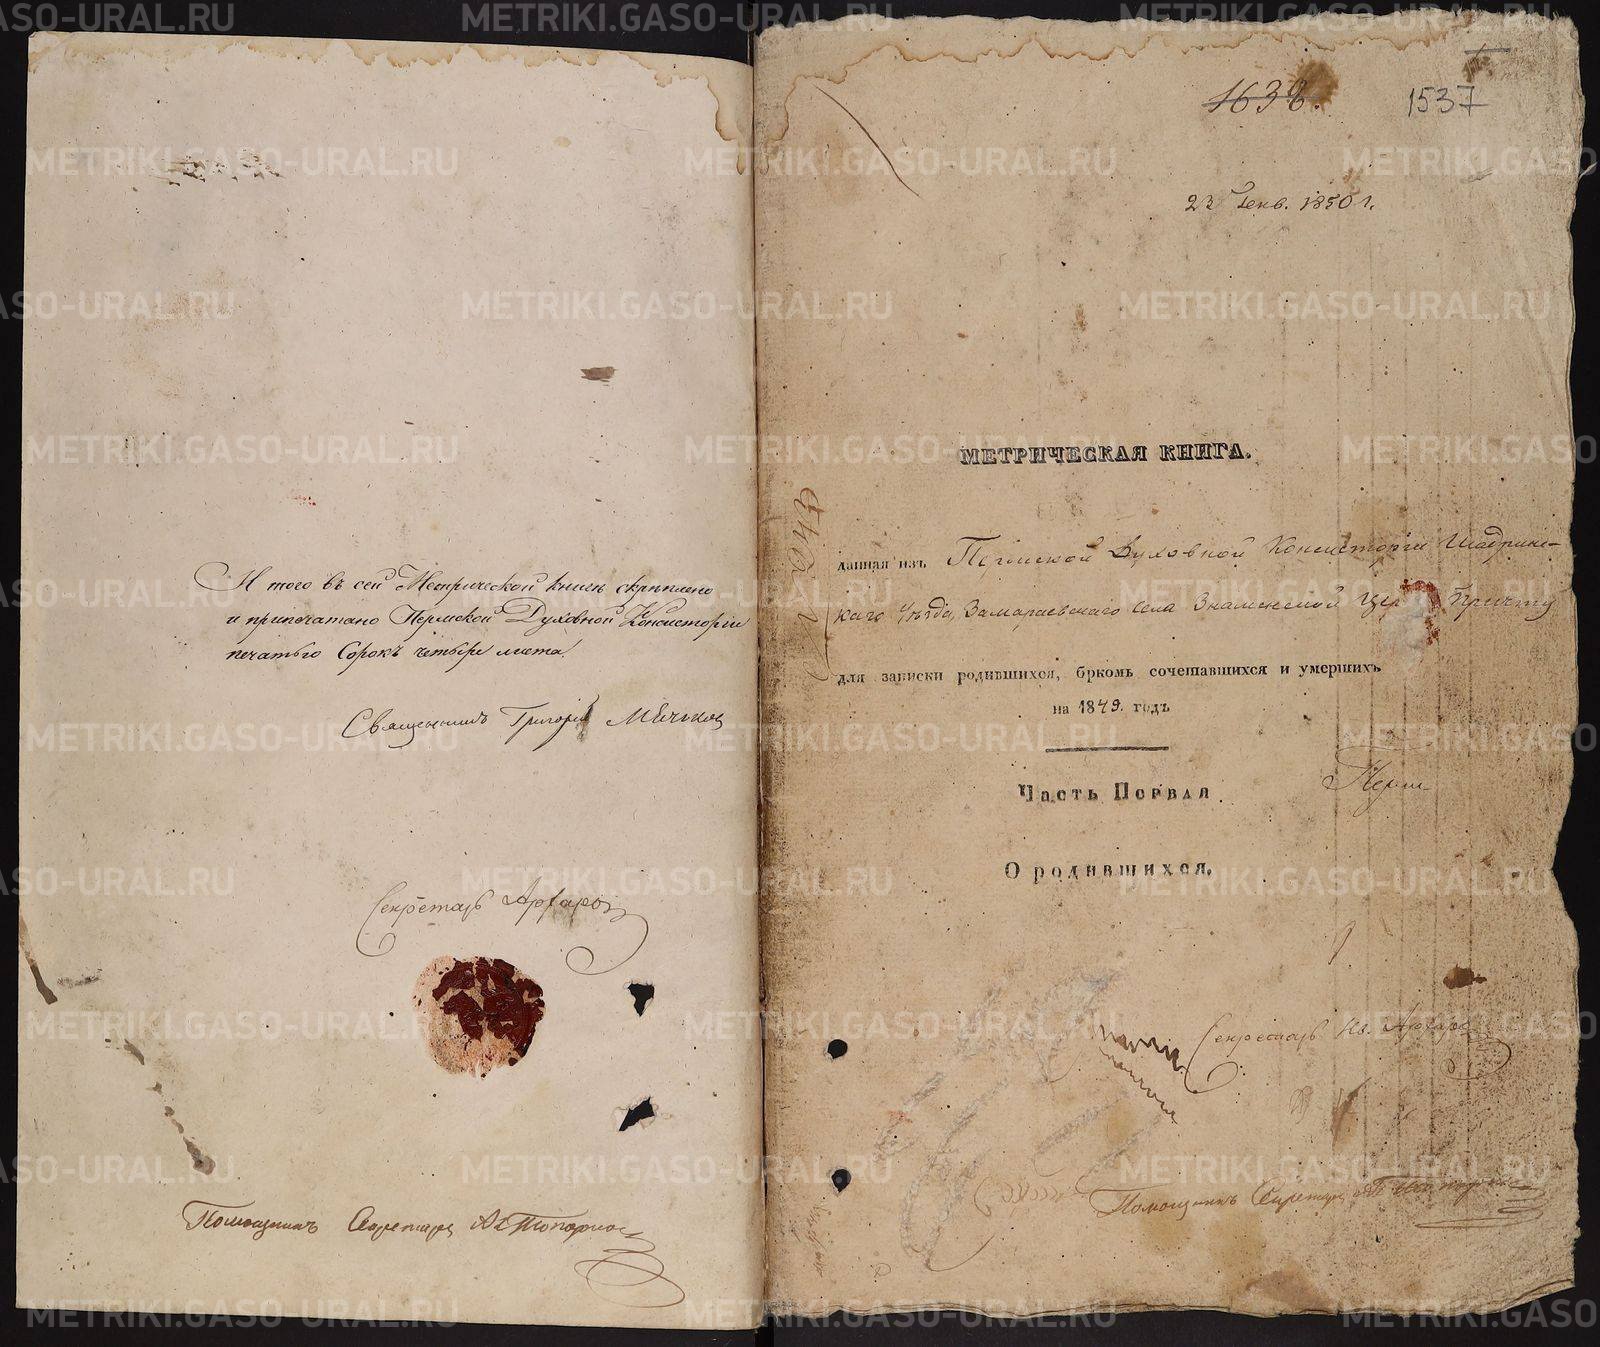 И того въ сей Метрической книгѣ скрѣплено
и припечатано Пермской Духовной Консисторіи
печатью Сорокъ четыре листа.
Священникъ Григорій
Секретарь
Помощникъ Секретаря
1638.
1537
23 Генв. 1850 г.
МЕТРИЧЕСКАЯ КНИГА.
данная изъ Пермской Духовной Консисторіи Шадринс-
каго Уѣзда, Замараевскаго села Знаменской Цер Причту
для записки родившихся, бркомъ сочетавшихся и умершихъ
на 1849. годъ
Часть Первая
О родившихся.
Секретарь
Помощникъ Секретаря
METRIKI.GASO-URAL.RU